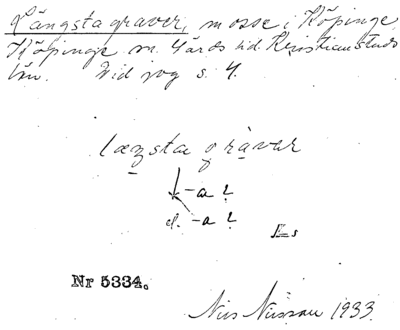 Längsta graver, mosse i Köpinge,
Köpinge sn. Gärds hd. Kristianstads
län. Vid jvg s. 4.
læzsta gràvar
-a ?
el. -a ?
Es
Nr 5334.
Nils Nilsson 1933.